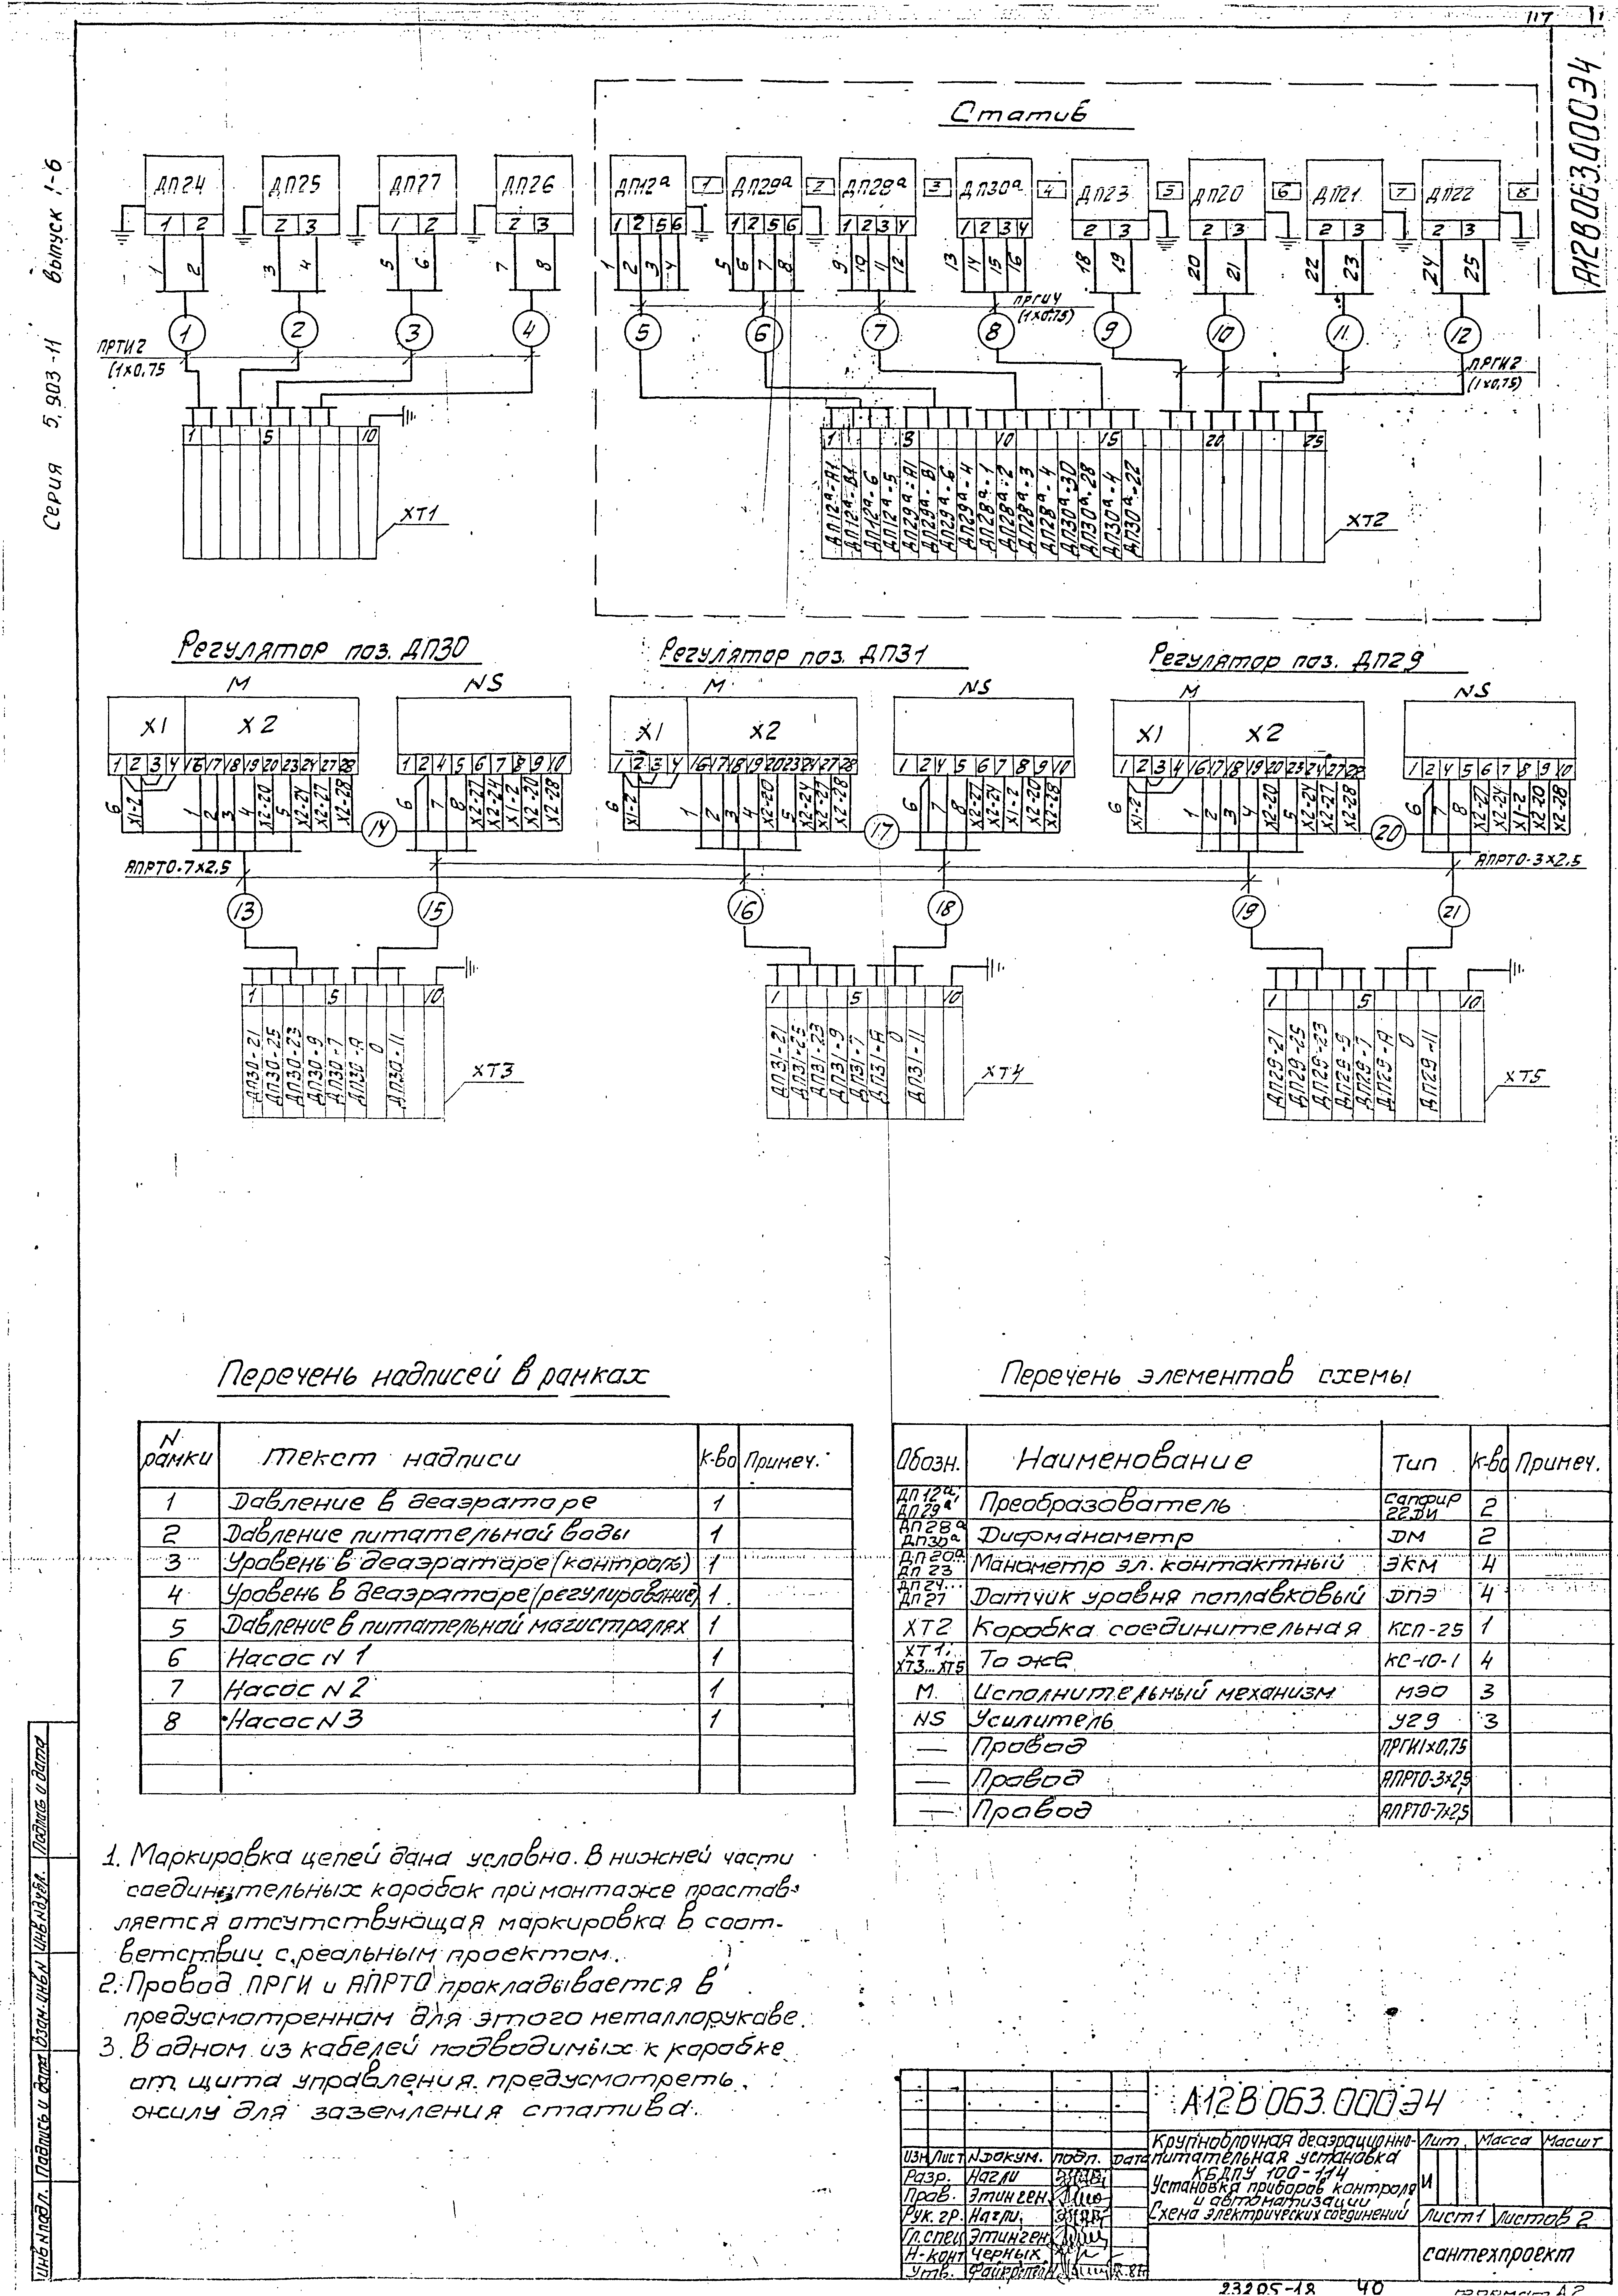 117
А12В063.000Э4
Серия 5.903-11 выпуск 1-6
Статив
ДП24 ДП25 ДП27 ДП26 ДП12а 1 ДП29а 2 ДП28а 3 ДП30а 4 ДП23 5 ДП20 6 ДП21 7 ДП22 8
1 2 2 3 1 2 2 3 1 2 5 6 1 2 5 6 1 2 3 4 1 2 3 4 2 3 2 3 2 3 2 3
1 2 3 4 5 6 7 8 1 2 3 4 5 6 7 8 9 10 11 12 13 14 15 16 18 19 20 21 22 23 24 25
ПРГИ4
(1х0,75)
1 2 3 4 5 6 7 8 9 10 11 12
ПРТИ2
(1х0,75
ПРГИ2
(1х0,75)
1 5 10
1 5 10 15 20 25
ДП12а-А1
ДП12а-В1
ДП12а-6
ДП12а-5
ДП29а-А1
ДП29а-В1
ДП29а-6
ДП29а-4
ДП28а-1
ДП28а-2
ДП28а-3
ДП28а-4
ДП30а-30
ДП30а-28
ДП30а-4
ДП30а-22
ХТ1
ХТ2
Регулятор поз. ДП30 Регулятор поз. ДП31 Регулятор поз. ДП29
М NS М NS М NS
Х1 Х2 Х1 Х2 Х1 Х2
1 2 3 4 16 17 18 19 20 23 24 27 28 1 2 4 5 6 7 8 9 10
1 2 3 4 16 17 18 19 20 23 24 27 28 1 2 4 5 6 7 8 9 10
1 2 3 4 16 17 18 19 20 23 24 27 28 1 2 4 5 6 7 8 9 10
6 Х1-2 1 2 3 4 Х2-20 5 Х2-24 Х2-27 Х2-28 6 7 8 Х2-27 Х2-24 Х1-2 Х2-20 Х2-28
6 Х1-2 1 2 3 4 Х2-20 5 Х2-24 Х2-27 Х2-28 6 7 8 Х2-27 Х2-24 Х1-2 Х2-20 Х2-18
6 Х1-2 1 2 3 4 Х2-20 5 Х2-24 Х2-27 Х2-28 6 7 8 Х2-27 Х2-24 Х1-2 Х2-20 Х2-28
14 17 20
АПРТО-7х2,5
АПРТО-3х2,5
13 15 16 18 19 21
1 5 10 1 5 10 1 5 10
ДП30-21 ДП30-25 ДП30-23 ДП30-9 ДП30-7 ДП30-А 0 ДП30-11
ХТ3
ДП31-21 ДП31-25 ДП31-23 ДП31-9 ДП31-7 ДП31-А 0 ДП31-11
ХТ4
ДП29-21 ДП29-25 ДП29-23 ДП29-9 ДП29-7 ДП29-А 0 ДП29-11
ХТ5
Перечень надписей в рамках
N рамки Текст надписи К-во Примеч.
1 Давление в деаэраторе 1
2 Давление питательной воды 1
3 Уровень в деаэраторе (контроль) 1
4 Уровень в деаэраторе (регулирование) 1
5 Давление в питательной магистралях 1
6 Насос N 1 1
7 Насос N 2 1
8 Насос N 3 1
Перечень элементов схемы
Обозн. Наименование Тип К-во Примеч.
ДП12а, ДП29а Преобразователь Сапфир 22ДИ 2
ДП28а ДП30а Дифманометр ДМ 2
ДП20а ДП23 Манометр эл. контактный ЭКМ 4
ДП24... ДП27 Датчик уровня поплавковый ДПЭ 4
ХТ2 Коробка соединительная КСП-25 1
ХТ1, ХТ3...ХТ5 То же КС-10-1 4
М. Исполнительный механизм МЭО 3
NS Усилитель У29 3
— Провод ПРГИ1х0,75
— Провод АПРТО-3х2,5
— Провод АПРТО-7х2,5
1. Маркировка цепей дана условно. В нижней части
соединительных коробок при монтаже простав-
ляется отсутствующая маркировка в соот-
ветствии с реальным проектом.
2. Провод ПРГИ и АПРТО прокладывается в
предусмотренном для этого металлорукаве.
3. В одном из кабелей подводимых к коробке
от щита управления предусмотреть
жилу для заземления статива.
Инв.Nподл. Подпись и дата Взам.инв.N Инв.Nдубл. Подпись и дата
А12В063.000Э4
Крупноблочная деаэрационно-
питательная установка
КБДПУ 100-114
Установка приборов контроля
и автоматизации
Схема электрических соединений
Лит. Масса Масшт
И
Лист 1 Листов 2
Сантехпроект
Изм Лист N докум. Подп. Дата
Разр. Нагли
Пров. Этинген
Рук. гр. Нагли
Гл.спец Этинген
Н-конт Черных
Утв.
23205-12 40
формат А2